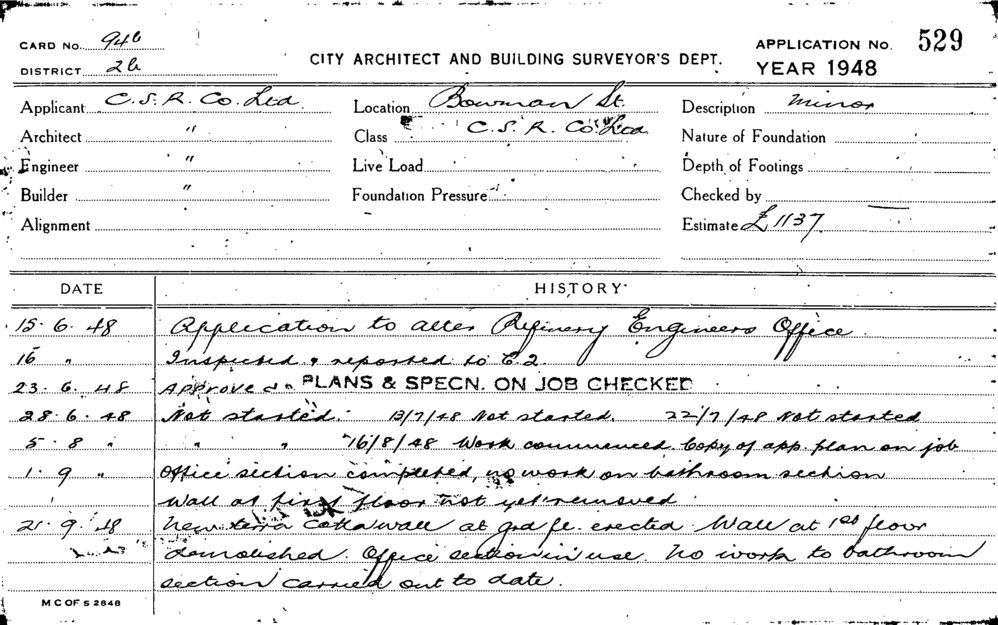 CARD No. 946
DISTRICT 26
CITY ARCHITECT AND BUILDING SURVEYOR'S DEPT.
APPLICATION No. 529
YEAR 1948
Applicant C. S. R. Co. Ltd
Location Bowman St.
Description Minor
Architect "
Class C. S. R. Co. Ltd
Nature of Foundation
Engineer "
Live Load
Depth of Footings
Builder "
Foundation Pressure
Checked by
Alignment
Estimate £1137
DATE HISTORY
15. 6. 48 Application to alter Refinery Engineers Office
16 " Inspected & reported to C.2.
23. 6. 48 Approved PLANS & SPECN. ON JOB CHECKED
28. 6. 48 Not started. 13/7/48 Not started. 22/7/48 Not started
5. 8 " " " 16/8/48 Work commenced, Copy of app. plan on job
1. 9 " Office section completed, no work on bathroom section
Wall at first floor not yet removed
21. 9. 48 New terra cotta wall at grd fl. erected. Wall at 1st floor
demolished. Office section in use. No work to bathroom
section carried out to date.
M C OF S 2848